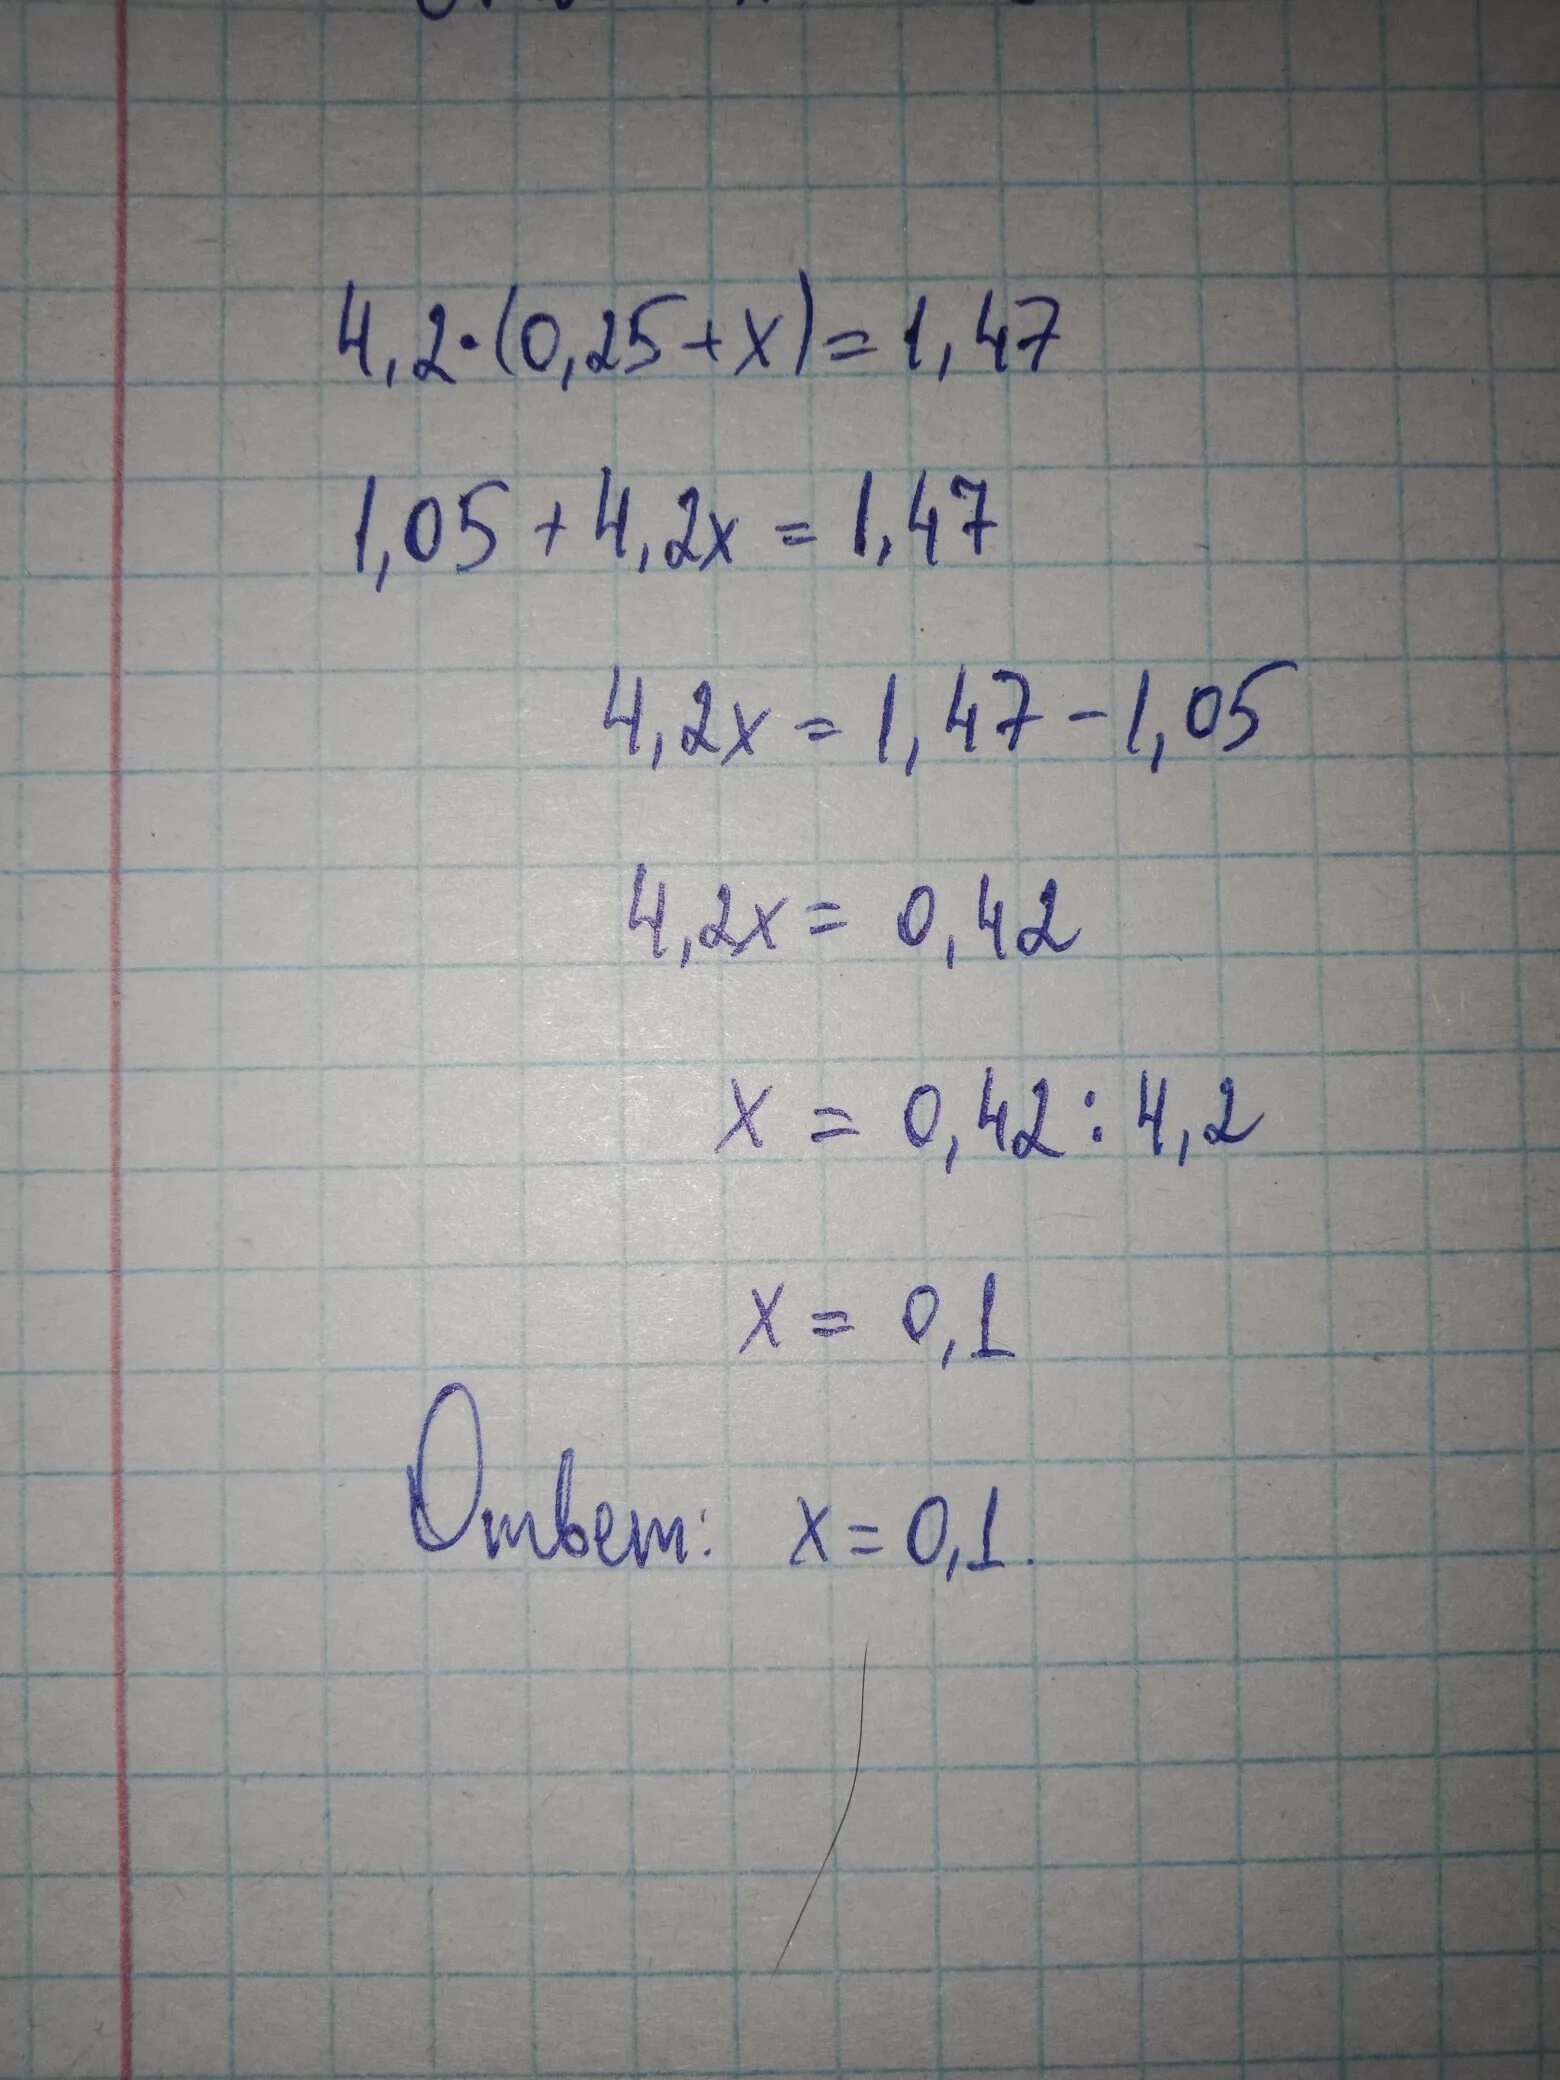 4,2·(0,25+x)=1,47
1,05+4,2x=1,47
4,2x=1,47-1,05
4,2x=0,42
x=0,42:4,2
x=0,1
Ответ: x=0,1.